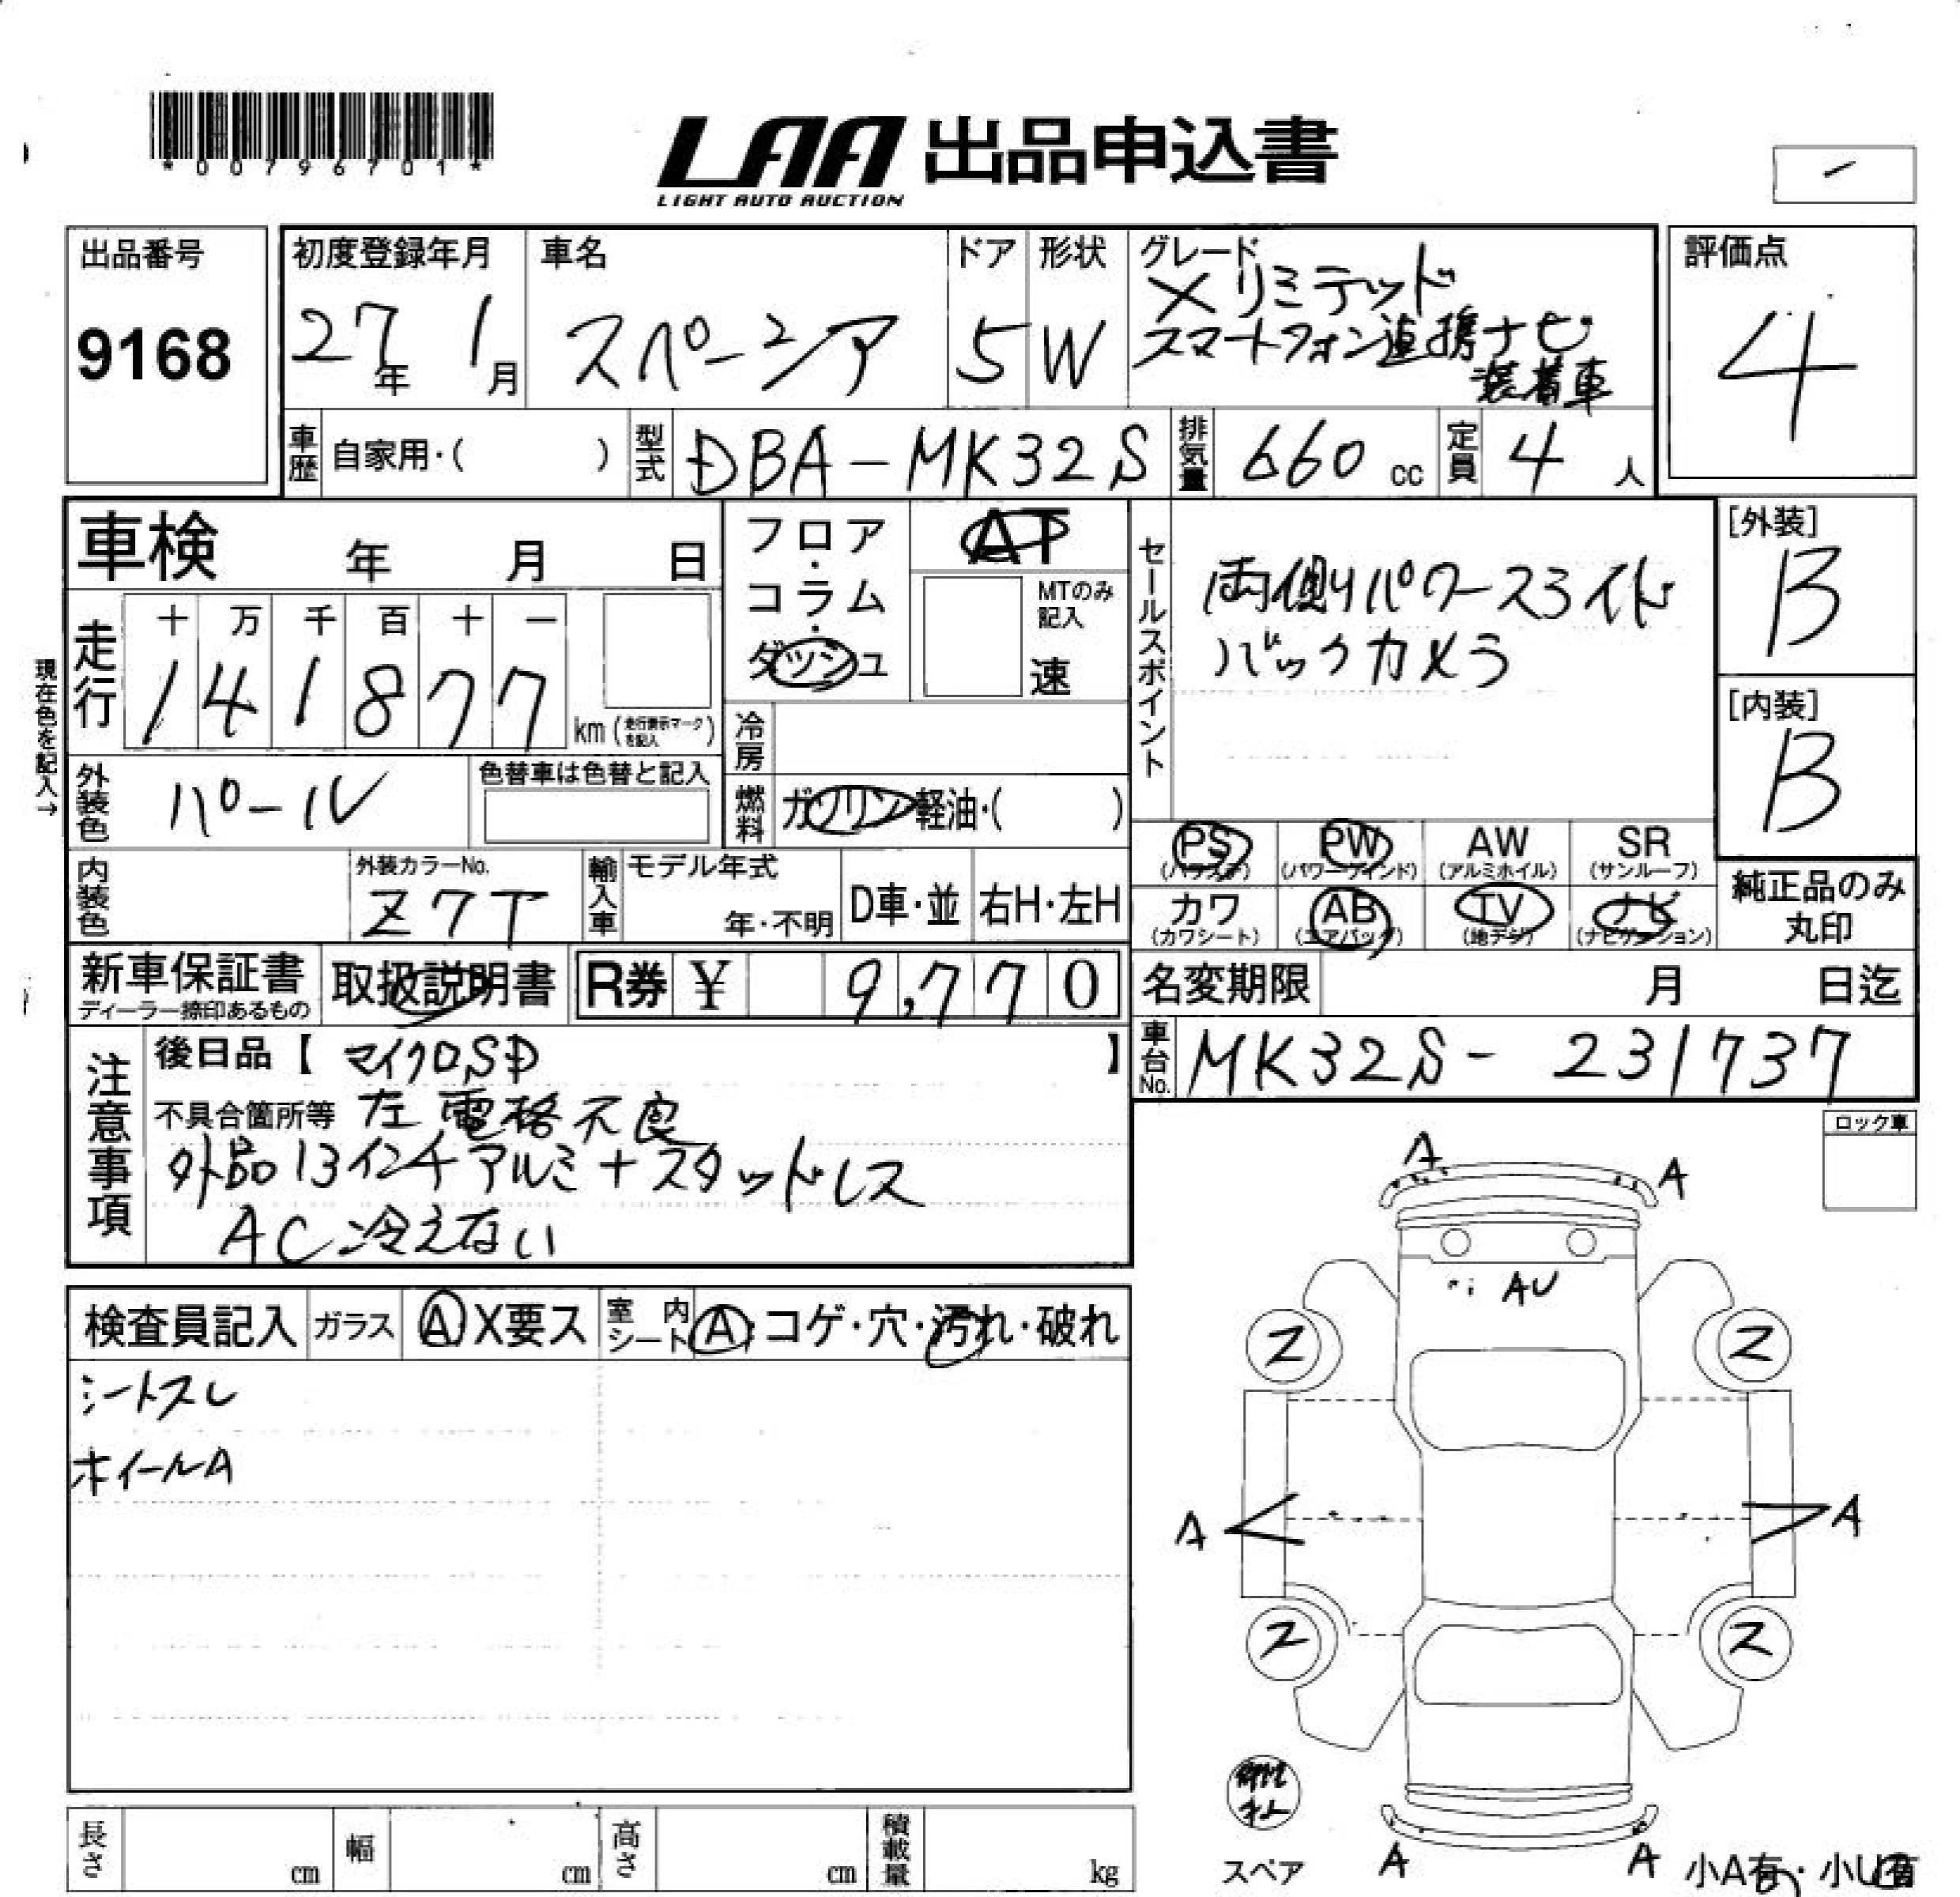 *00796701*
LAA 出品申込書
LIGHT AUTO AUCTION
出品番号
9168
初度登録年月
27年 1月
車名
スペーシア
ドア
5
形状
W
グレード
Xリミテッド
スマートフォン連携ナビ
装着車
評価点
4
車歴 自家用・( )
型式 DBA-MK32S
排気量 660 cc
定員 4 人
車検 年 月 日
フロア・コラム・ダッシュ
AT
MTのみ記入
速
セールスポイント
両側パワースライド
バックカメラ
[外装]
B
[内装]
B
現在色を記入→
走行
十 万 千 百 十 一
1 4 1 8 7 7
km (走行表示マークを記入)
冷房
外装色 パール
色替車は色替と記入
燃料 ガソリン・軽油・( )
PS (パワステ) PW (パワーウインド) AW (アルミホイル) SR (サンルーフ)
カワ (カワシート) AB (エアバッグ) TV (地デジ) ナビ (ナビゲーション)
純正品のみ
丸印
内装色
外装カラーNo.
Z7T
輸入車
モデル年式
年・不明
D車・並
右H・左H
新車保証書
ディーラー捺印あるもの
取扱説明書
R券 ¥ 9,770
名変期限 月 日迄
車台No. MK32S-231737
注意事項
後日品【 マイクロSD 】
不具合箇所等 左電格不良
外品13インチアルミ+スタッドレス
AC冷えない
ロック車
検査員記入
ガラス A X要ス
室内シート A・コゲ・穴・汚れ・破れ
シートスレ
ホイールA
A A
AU
ス ス
A A
ス ス
A A
スペア
小A有・小U有
長さ cm
幅 cm
高さ cm
積載量 kg